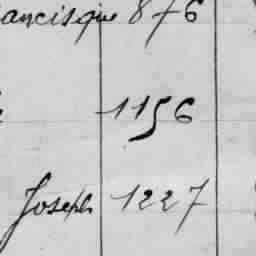 ancisque 876
1156
Joseph 1227